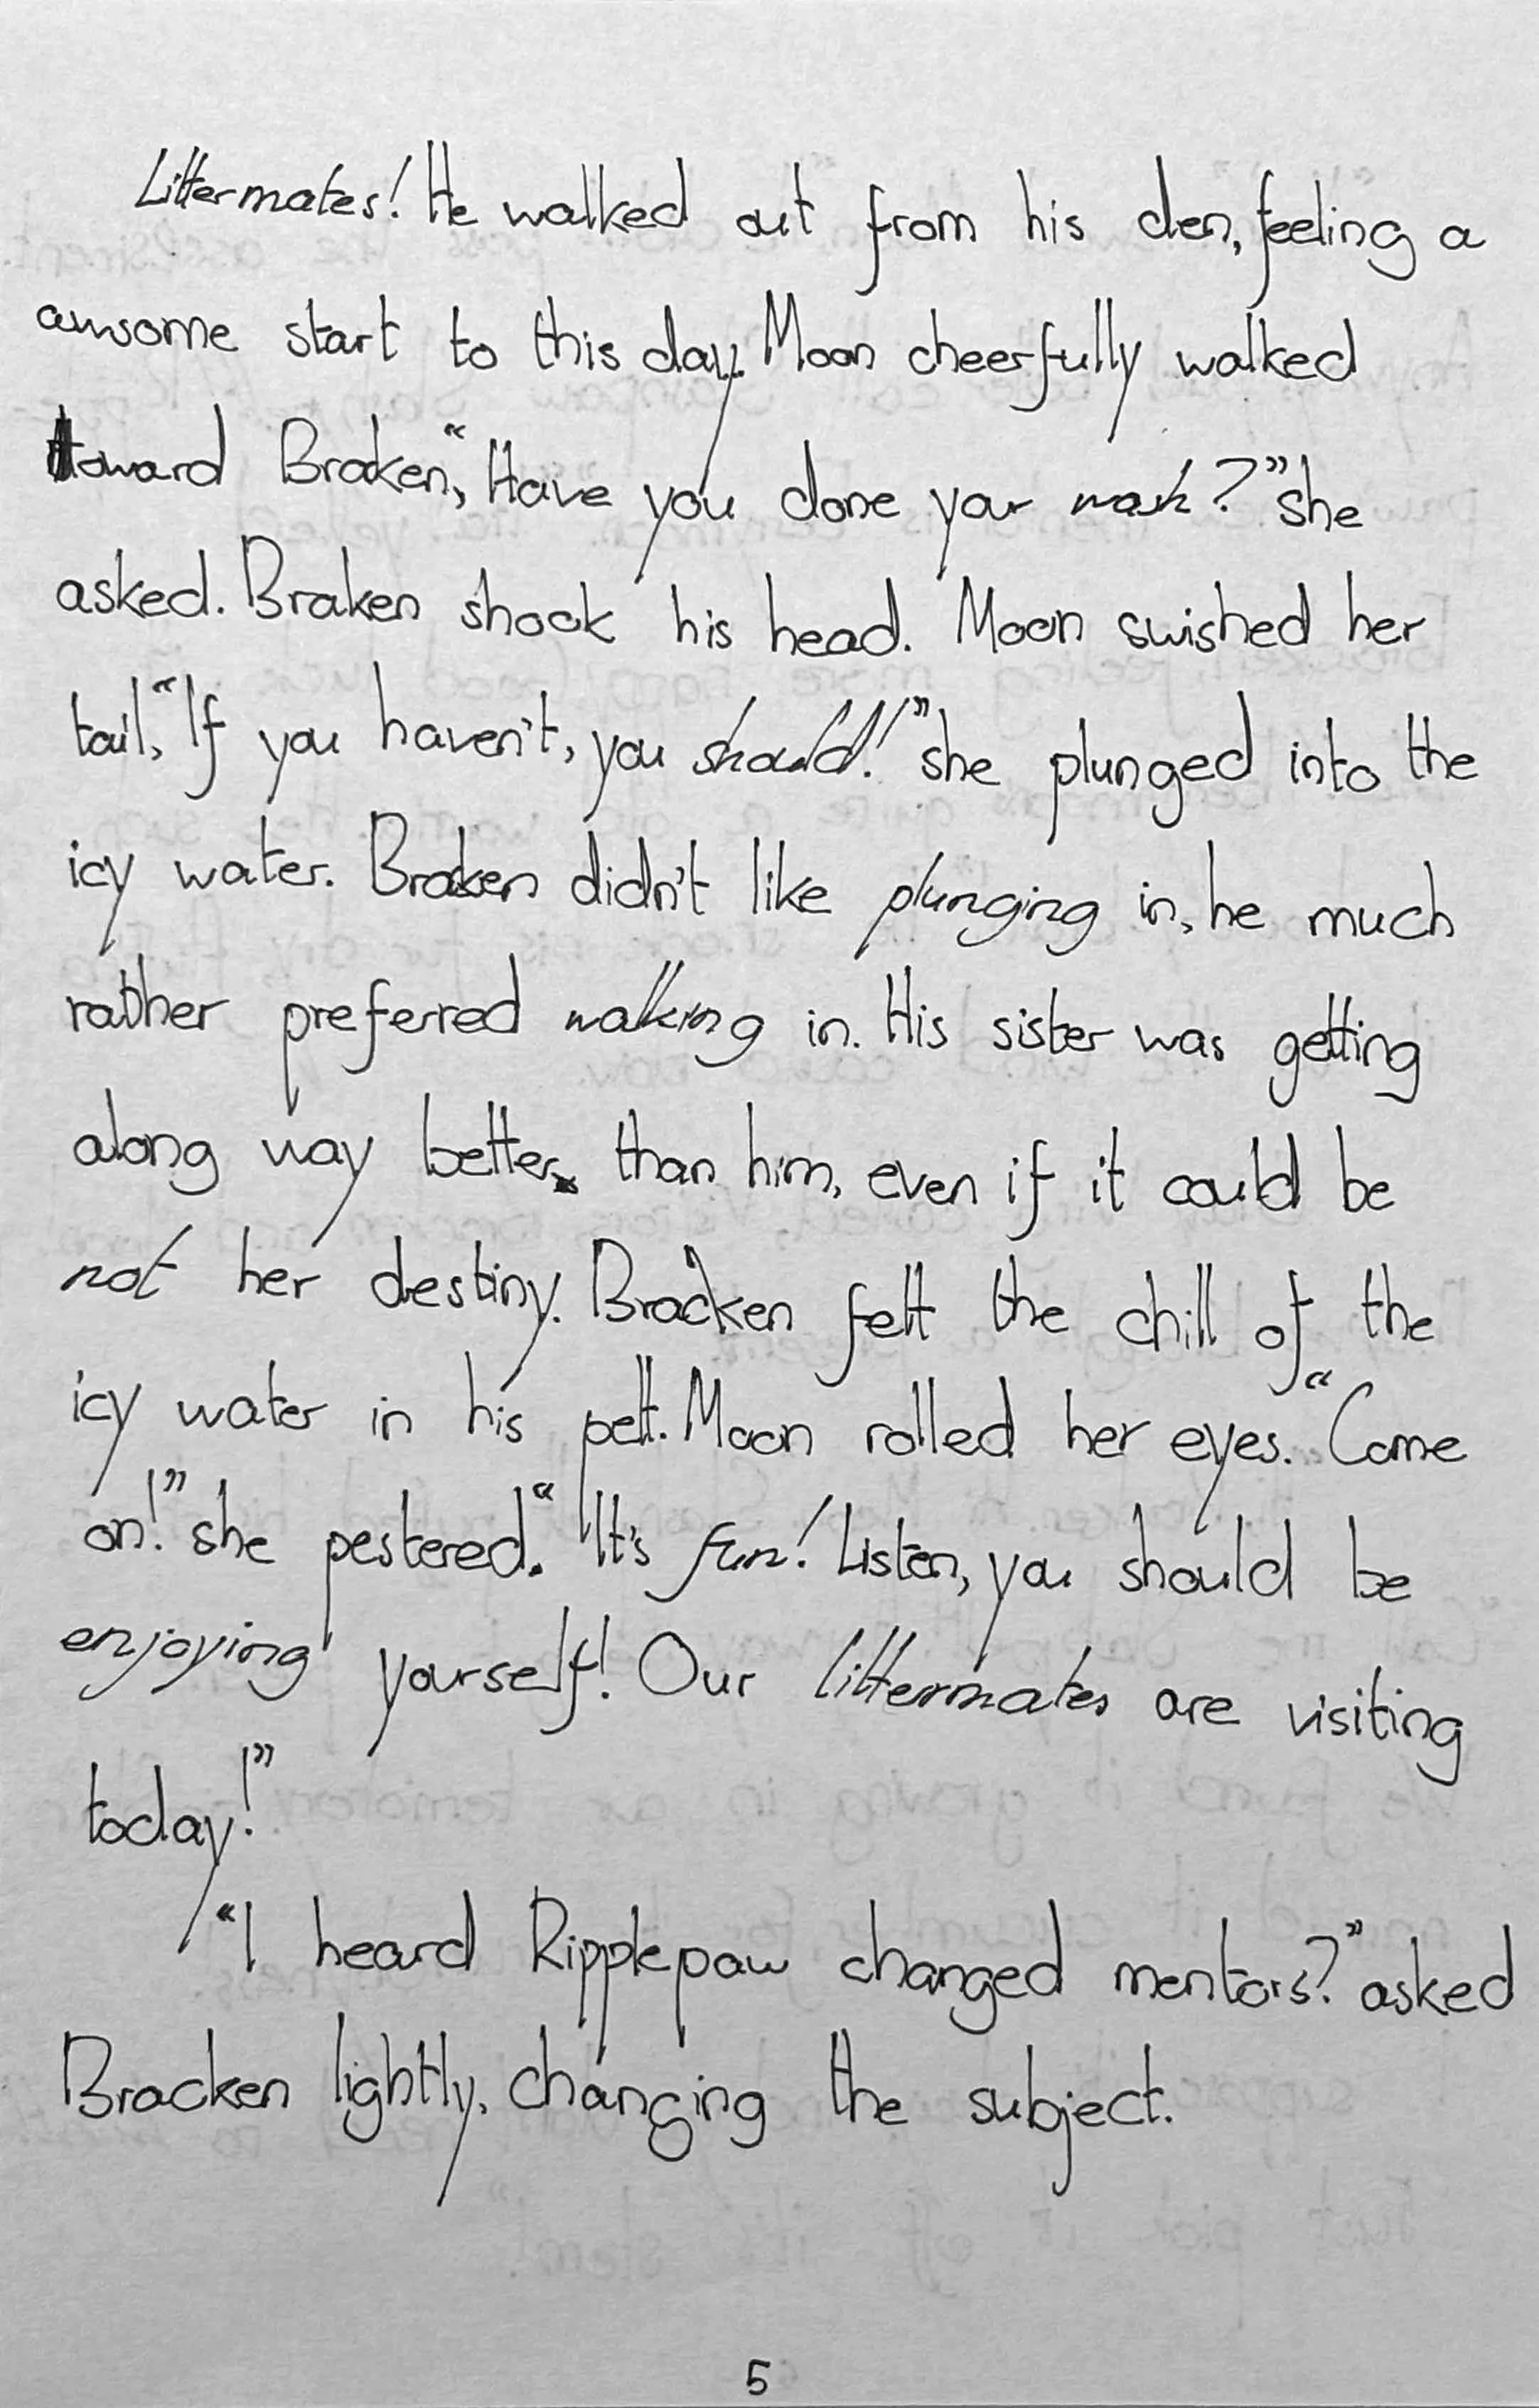 Littermates! He walked out from his den, feeling a
awsome start to this day. Moon cheerfully walked
toward Braken, "Have you done your wash?" she
asked. Braken shook his head. Moon swished her
tail, "If you haven't, you should!" she plunged into the
icy water. Braken didn't like plunging in, he much
rather preferred walking in. His sister was getting
along way better than him, even if it could be
not her destiny. Bracken felt the chill of the
icy water in his pelt. Moon rolled her eyes. "Come
on!" she pestered. "It's fun! Listen, you should be
enjoying yourself! Our littermates are visiting
today!"
"I heard Ripplepaw changed mentors?" asked
Bracken lightly, changing the subject.
5